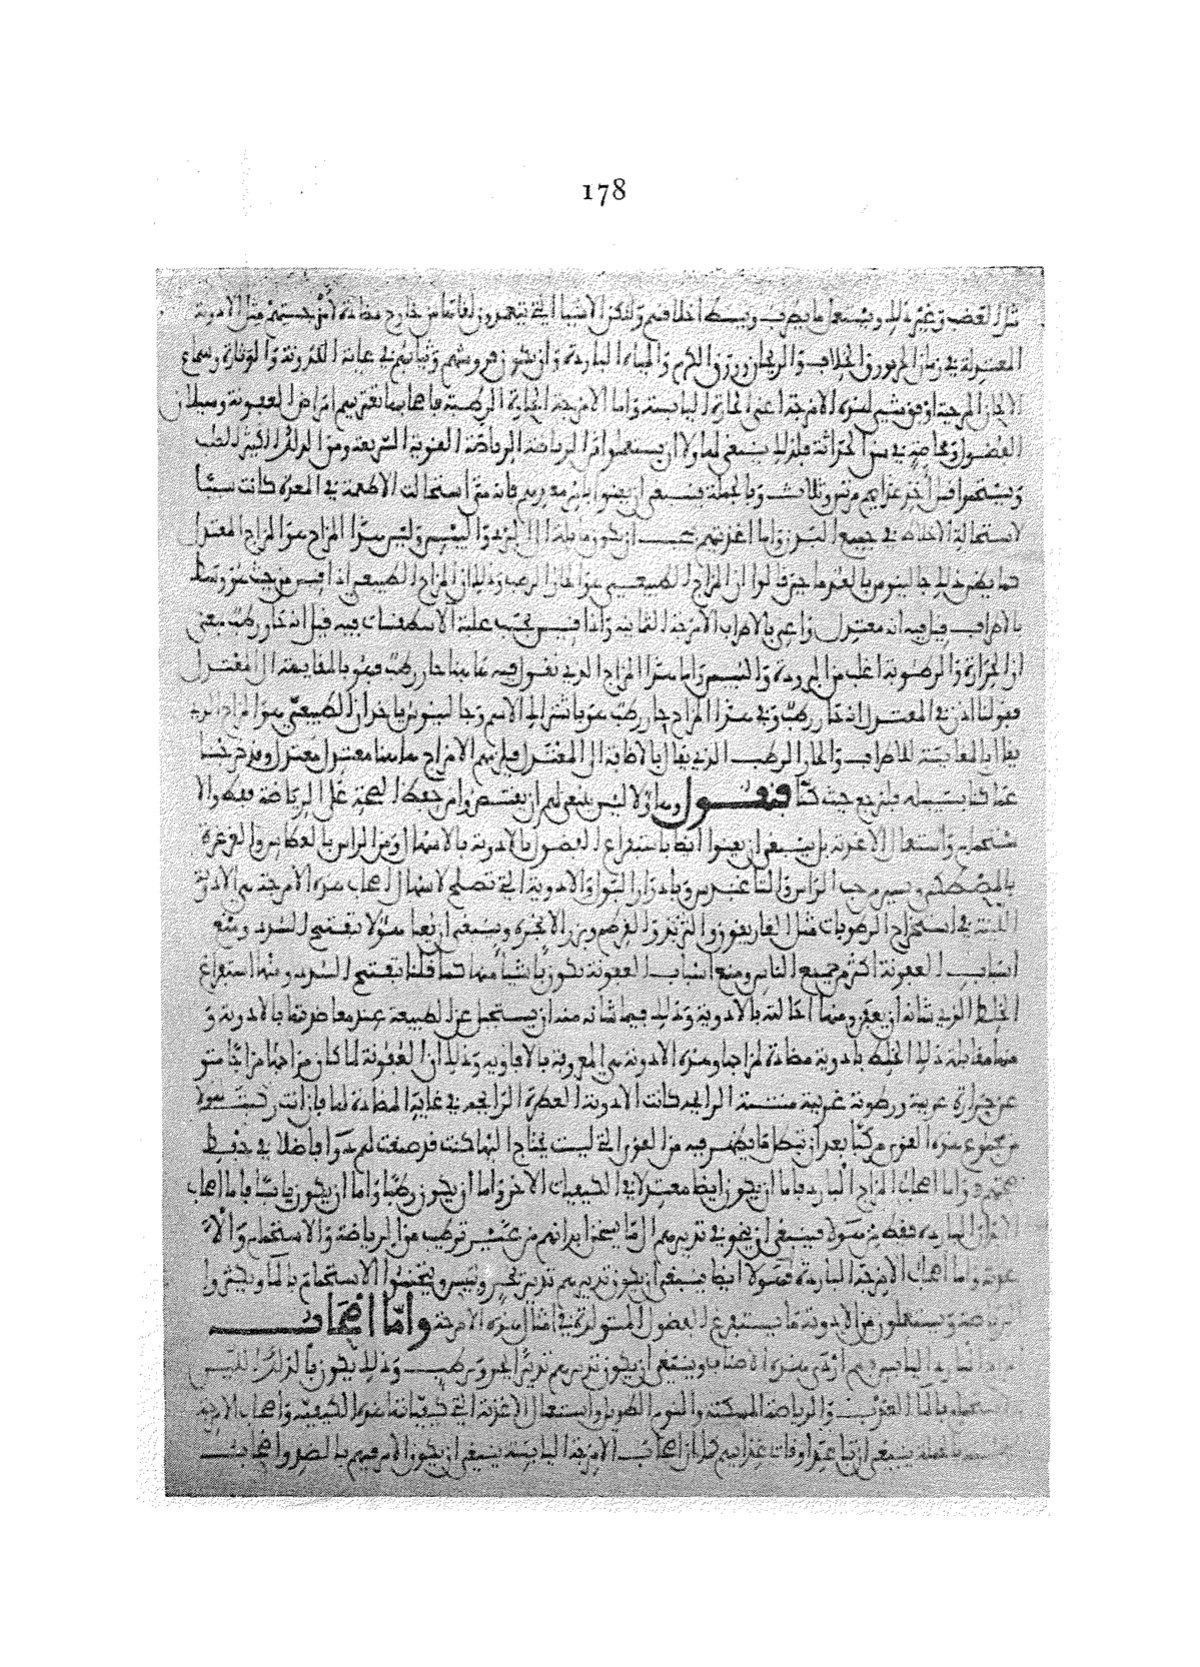 178
مثل الغضب وغير ذلك ويستعمل ما يطرب ويبسط اخلاقهم ولتكن الاشياء التي يتبخرون لقاتها من خارج مضادة لامزجتهم مثل الادوية
المعتدلة في زمان الحر ورق الخلاف والريحان وورق الكرم والمياه الباردة وان يكون فروشهم وثيابهم في غاية اللدونة والوثارة وسماع
الالحان المرخية او بوشي لهذه الامزجة اعني الحارة اليابسة واما الامزجة الحارة الرطبة فاصحابها تعتريهم امراض العفونة وسيلان
الفضول وبخاصة في سن الحداثة فلذلك ينبغي لهاولا ان يستعملوا من الرياضة الرياضة القوية السريعة ومن الدلك الكثير الصلب
ويستحموا قبل اخذ غذايهم مرتين وثلاث وبالجملة فينبغي ان يعنوا بامر معدهم فانه متى استحالت الاطعمة في المعدة كانت سببا
لاستحالة الاخلاط في جميع البدن واما اغذيتهم فيجب ان يكون مايلة الى البرد واليبس وليس هذا المزاج هو المزاج المعتدل
كما يظن ذلك جالينوس بالقدما حين قالوا ان المزاج الطبيعي هو الحار الرطب وذلك ان المزاج الطبيعي اذا قيس من حيث هو وسط
بالاطراف قيل فيه انه معتدل واعني بالاطراف الامزجة الثمانية واذا قيس بحسب غلبة الاسطقسات فيه قيل انه حار رطب بمعنى
ان الحرارة والرطوبة اغلب من البرودة واليبس واما هذا المزاج الذي نقول فيه هاهنا حار رطب فهو بالمقايسة الى المعتدل
فقولنا اذن في المعتدل انه حار رطب وفي هذا المزاج حار رطب هو باشتراك الاسم وجالينوس ياخذ ان الطبيعي هو المزاج الذي
يقال بالمقايسة للاطراف والحار الرطب الذي يقال بالاضافة الى المعتدل فليفهم الامزاج هاهنا معتدل معتدل وقد خرجنا
عما كنا بسبيله فلنرجع حيث كنا فنقول وهاولا ليس ينبغي لهم ان يقتصروا من حفظ الصحة على الرياضة فقط والا
ستحمام واستعمال الاغذية بل ينبغي ان يعنوا ايضا باستفراغ الفضول بالادوية بالاسهال ومن الراس بالعطاس والغرغرة
بالمصطكى وبميوبزج الراس والتاغندس وبادرار البول والادوية التي تصلح لاسهال اصحاب هذه الامزجة هي الادوية
اللينة في استخراج الرطوبات مثل الغاريقون والتربذ والقرطم وبزر الانجرة وينبغي ان يعنا هولا بتفتيح السدد ومنع
اسباب العفونة اكثر من جميع الناس ومنع اسباب العفونة تكون باشيا منها كما قلنا بتفتيح السدد ومنها استفراغ
الخلط الذي شانه ان يعفن ومنها احالته بالادوية وذلك فيما شانه منه ان يستحيل عن الطبيعة عند معاضدتها بالادوية و
منها مقابلة ذلك الخلط بادوية مضادة لمزاجها وهذه الادوية هي المعروفة بالافاويه وذلك ان العفونة لما كان مزاجها مزاجا متو
عن حرارة غريبة ورطوبة غريبة منتنة الرايحة كانت الادوية العطرة الرايحة في غاية المضادة لها فان انت ركبت لهولا
من مجموع هذه القوى مركبا بعد ان تبطل ما يظهر فيه من القوى التي ليست يحتاج اليها كنت قد صنعت لهم دوا فاضلا في حفظ
صحتهم واما اصحاب المزاج البارد فاما ان يكون ايضا معتدلا في الكيفيات الاخر واما ان يكون رطبا واما ان يكون يابسا فاما اصحاب
الابدان الباردة فقط من هولا فينبغي ان ينحو في تدبيرهم الى ما يسخن ابدانهم من غير ترطيب من الرياضة والاستحمام والا
غذية واما اصحاب الامزجة الباردة فهولا ايضا ينبغي ان يكون تدبيرهم تدبير تسخين وتيبيس ويجتنبوا الاستحمام بالما ويكثروا
الرياضة ويستعملون من الادوية ما يستفرغ الفضول المتولدة في امثال هذه الامزجة واما اصحاب
المزاج البارد اليابس فهم اردى هذه الاصناف وينبغي ان يكون تدبيرهم تدبير الحر وترطيب وذلك يكون بالدلك اليسير
والاستحمام بالما العذب والرياضة المسكنة والنوم الطويل واستعمال الاغذية التي كيفياتها هذه الكيفية واصحاب الامزجة
بالجملة ينبغي ان تباعد اوقات غذايهم كما ان اصحاب الامزجة اليابسة ينبغي ان يكون الامر فيهم بالضد واصحاب